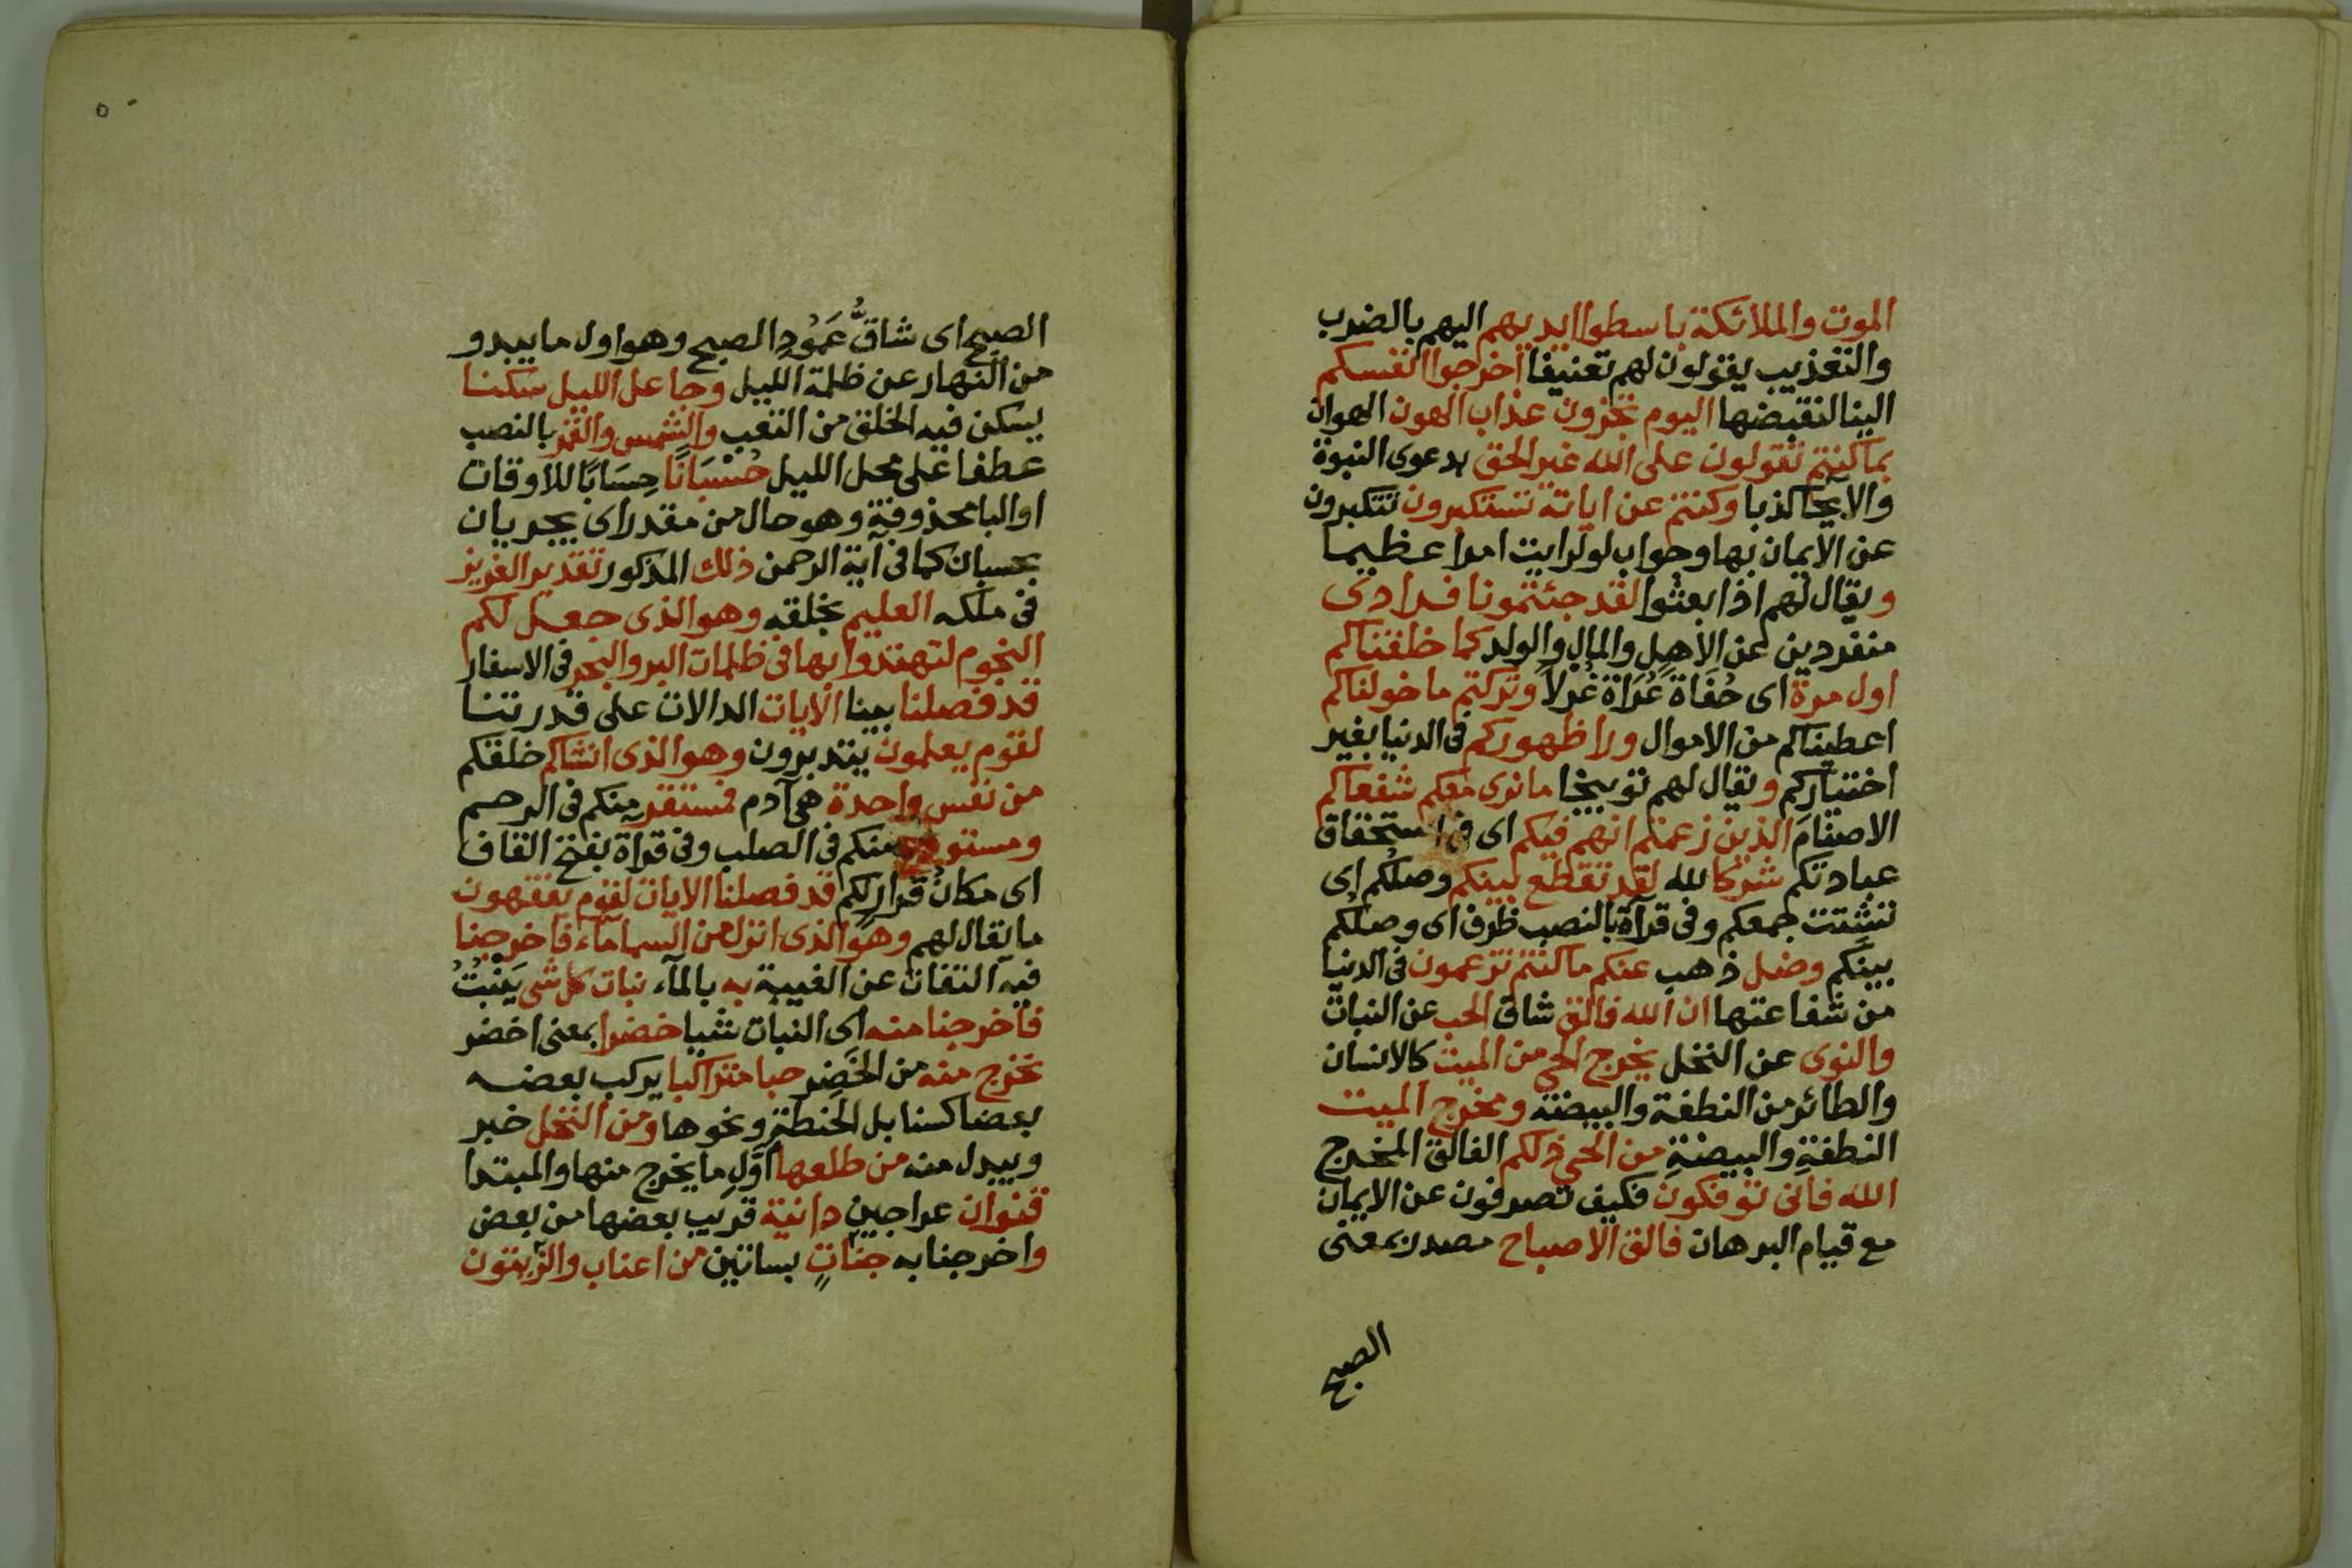 الموت والملائكة باسطوا ايديهم اليهم بالضرب
والتعذيب يقولون لهم تعنيفا اخرجوا انفسكم
الينا لنقبضها اليوم تجزون عذاب الهون الهوان
بما كنتم تقولون على الله غير الحق بدعوى النبوة
والايحا كذبا وكنتم عن اياته تستكبرون تتكبرون
عن الايمان بها وجواب لو لرايت امرا عظيما
ويقال لهم اذا بعثوا لقد جئتمونا فرادى
منفردين عن الاهل والمال والولد كما خلقناكم
اول مرة اى حُفَاةً عُرَاةً غُرلاً وتركتم ما خولناكم
اعطيناكم من الاموال ورا ظهوركم فى الدنيا بغير
اختياركم ويقال لهم توبيخا ما نرى معكم شفعاكم
الاصنامَ الذين زعمتم انهم فيكم اى فى استحقاق
عبادتكم شركا لله لقد تقطع بينكم وصلكم اى
تشتت جمعكم وفى قراة بالنصب ظرف اى وصلكم
بينكم وضل ذهب عنكم ما كنتم تزعمون فى الدنيا
من شفاعتها ان الله فالق شاق الحب عن النبات
والنوى عن النخل يخرج الحي من الميت كالانسان
والطائر من النطفة والبيضة ومخرج الميت
النطفةِ والبيضةِ من الحي ذلكم الفالق المخرج
الله فانى توفكون فكيف تصرفون عن الايمان
مع قيام البرهان فالق الاصباح مصدر بمعنى
الصبح
٥
الصبح اى شاقُّ عَمُودِ الصبح وهو اول ما يبدو
من النهار عن ظلمة الليل وجاعل الليل سكنا
يسكن فيه الخلق من التعب والشمس والقمر بالنصب
عطفا على محل الليل حُسْبَانًا حِسَابًا للاوقات
او البا محذوفة وهو حال من مقدر اى يجريان
بحسبان كما فى آية الرحمن ذلك المذكور تقدير العزيز
فى ملكه العليم بخلقه وهو الذى جعل لكم
النجوم لتهتدوا بها فى ظلمات البر والبحر فى الاسفار
قد فصلنا بينا الايات الدالات على قدرتنا
لقوم يعلمون يتدبرون وهو الذى انشاكم خلقكم
من نفس واحدة هى آدم فمستقر منكم فى الرحم
ومستودع منكم فى الصلب وفى قراة بفتح القاف
اى مكان قرار لكم قد فصلنا الايات لقوم يفقهون
ما يقال لهم وهو الذى انزل من السما مآء فاخرجنا
فيه التفات عن الغيبة به بالمآء نبات كل شى يَنْبُتُ
فاخرجنا منه اى النبات شيا خضرا بمعنى اخضر
نخرج منه من الخَضِر حبا متراكبا يركب بعضه
بعضا كسنابل الحنطة ونحوها ومن النخل خبر
ويبدل منه من طلعها اوَّلِ ما يخرج منها والمبتدا
قنوان عراجين دانية قريب بعضها من بعض
واخرجنا به جناتٍ بساتين من اعناب والزيتون